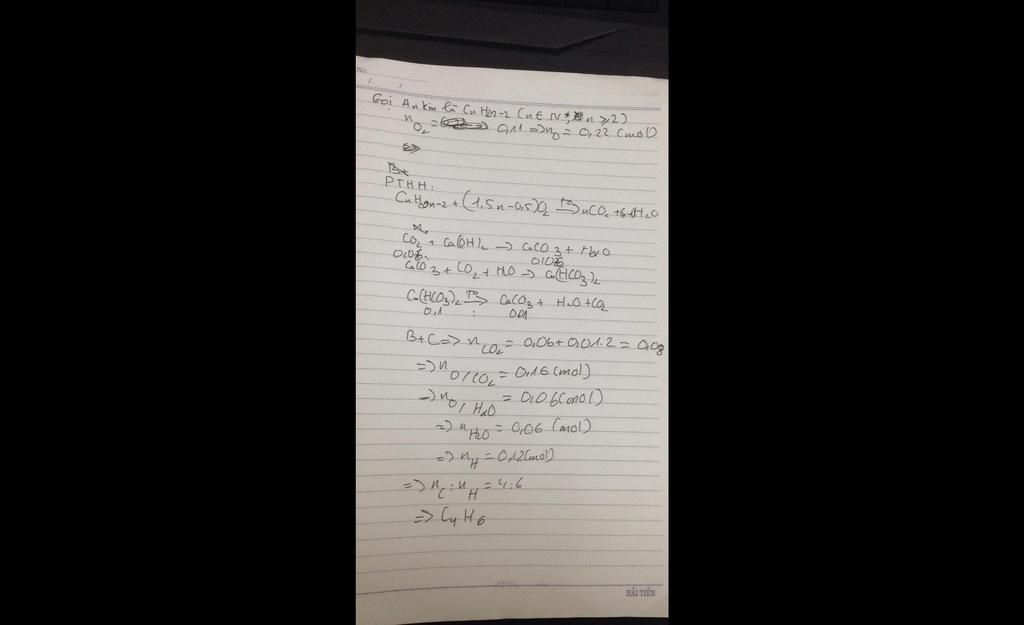 No.
/ /
Gọi Ankin là CnH2n-2 (n ∈ N*, n ≥ 2)
nO2 = 0,11 => nO = 0,22 (mol)
PTHH:
CnH2n-2 + (1,5n-0,5)O2 –to–> nCO2 + (n-1)H2O
CO2 + Ca(OH)2 -> CaCO3 + H2O
0,06 0,06
CaCO3 + CO2 + H2O -> Ca(HCO3)2
Ca(HCO3)2 –to–> CaCO3 + H2O + CO2
0,1 : 0,01
B+C => nCO2 = 0,06 + 0,01.2 = 0,08
=> nO/CO2 = 0,16 (mol)
=> nO/H2O = 0,06 (mol)
=> nH2O = 0,06 (mol)
=> nH = 0,12 (mol)
=> nC : nH = 4:6
=> C4H6
HẢI TIẾN